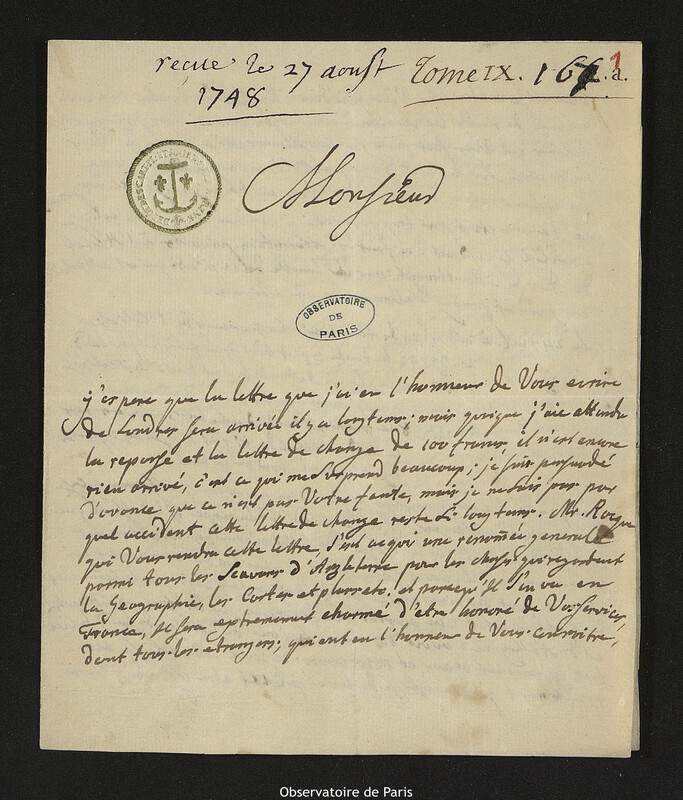 reçue le 27 aoust Tome IX. 167. 1 a.
1748
Monsieur
OBSERVATOIRE
DE
PARIS
j'espere que la lettre que j'ai eu l'honneur de Vous ecrire
de Londres sera arrivée il y a longtems; mais quoique j'aie attendu
la reponse et la lettre de change de 100 francs il n'est encore
rien arrivé, c'est ce qui me surprend beaucoup; je suis persuadé
d'avance que ce n'est pas Votre faute, mais je ne sais pas par
quel accident cette lettre de change reste si longtems. Mr. Rocque
qui Vous rendra cette lettre, s'est acquis une renommée generale
parmi tous les Scavans d'Angleterre pour les choses qui regardent
la Geographie, les Cartes et plans etc. et parcequ'il s'en va en
France, il sera extremement charmé d'etre honoré de Vos services,
dont tous les etrangers, qui ont eu l'honneur de Vous connoitre,
Observatoire de Paris